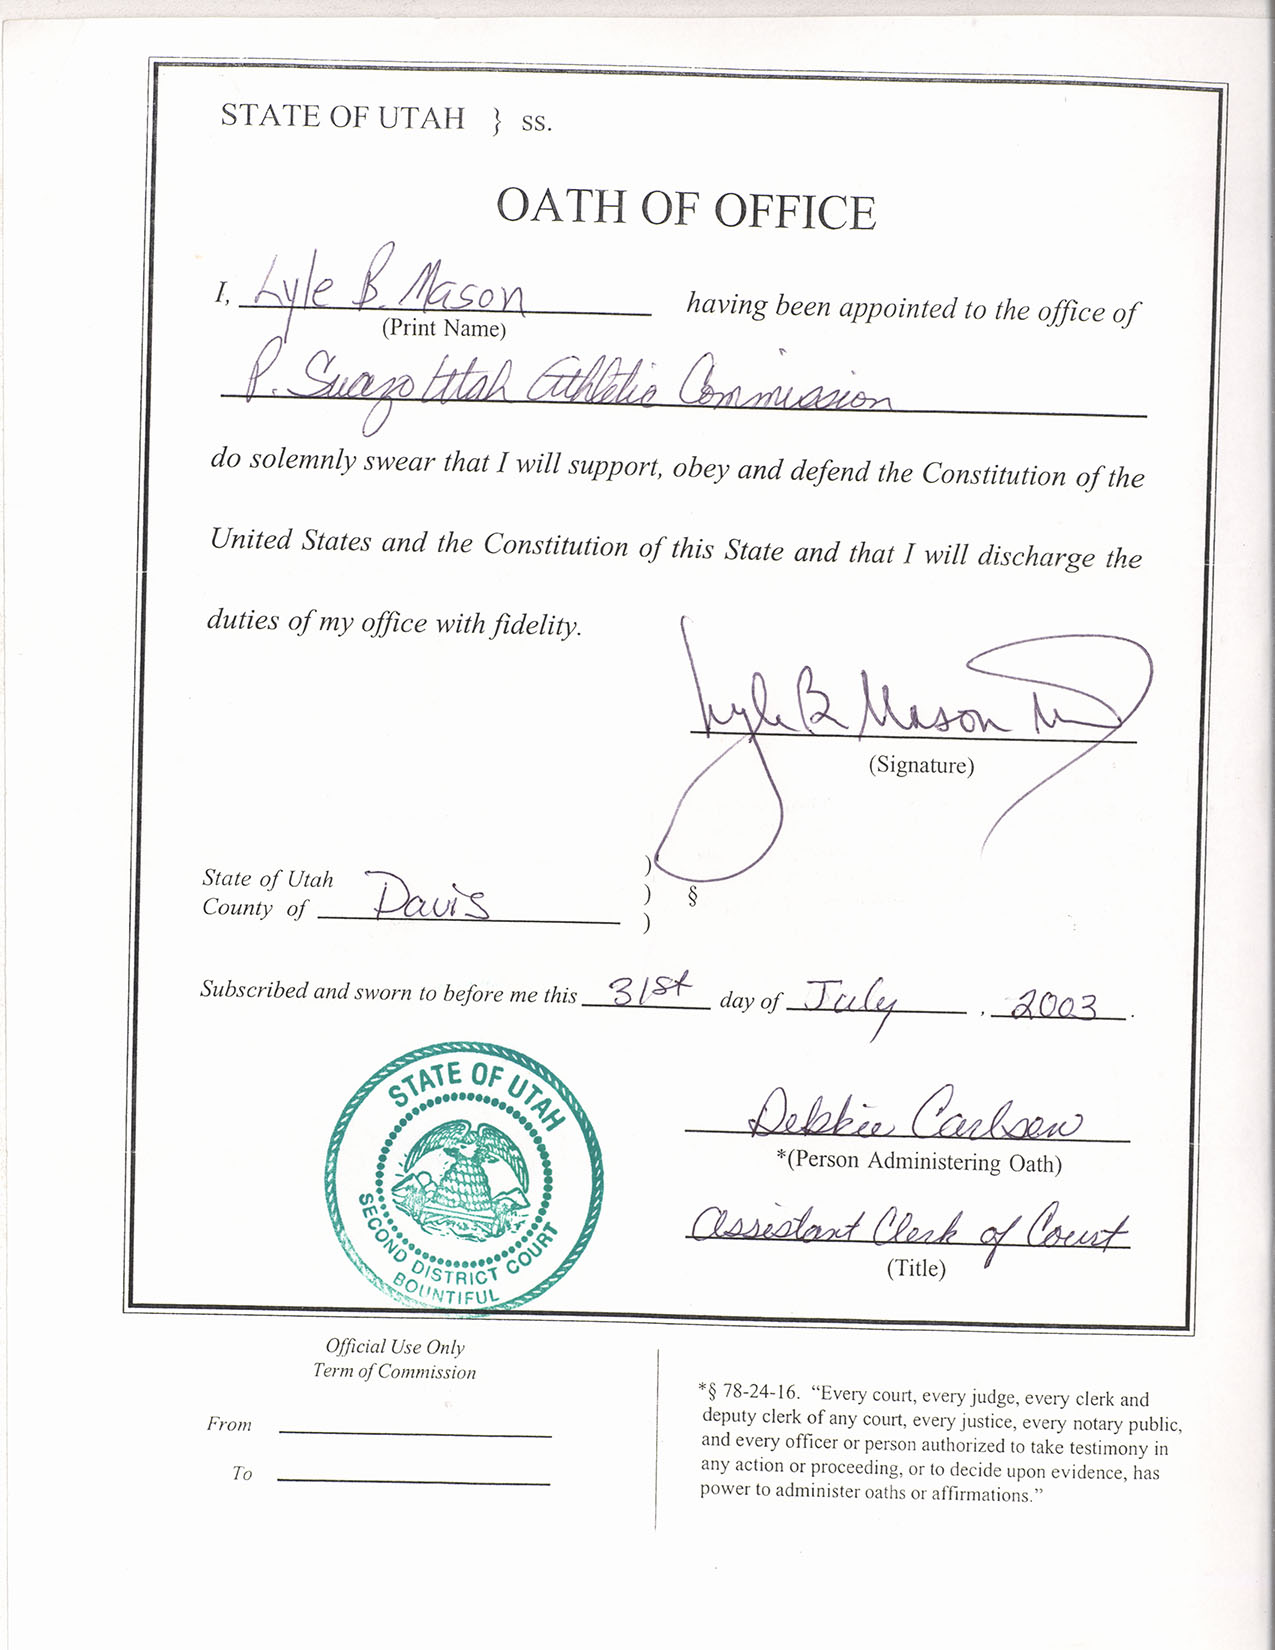 STATE OF UTAH } ss.
OATH OF OFFICE
I, Lyle B. Mason having been appointed to the office of
(Print Name)
P. Suazo Utah Athletic Commission
do solemnly swear that I will support, obey and defend the Constitution of the
United States and the Constitution of this State and that I will discharge the
duties of my office with fidelity.
Lyle B Mason
(Signature)
)
State of Utah
) §
County of Davis
)
Subscribed and sworn to before me this 31st day of July , 2003 .
STATE OF UTAH
SECOND DISTRICT COURT
BOUNTIFUL
Debbie Carlsen
*(Person Administering Oath)
Assistant Clerk of Court
(Title)
Official Use Only
Term of Commission
From
To
*§ 78-24-16. “Every court, every judge, every clerk and
deputy clerk of any court, every justice, every notary public,
and every officer or person authorized to take testimony in
any action or proceeding, or to decide upon evidence, has
power to administer oaths or affirmations.”